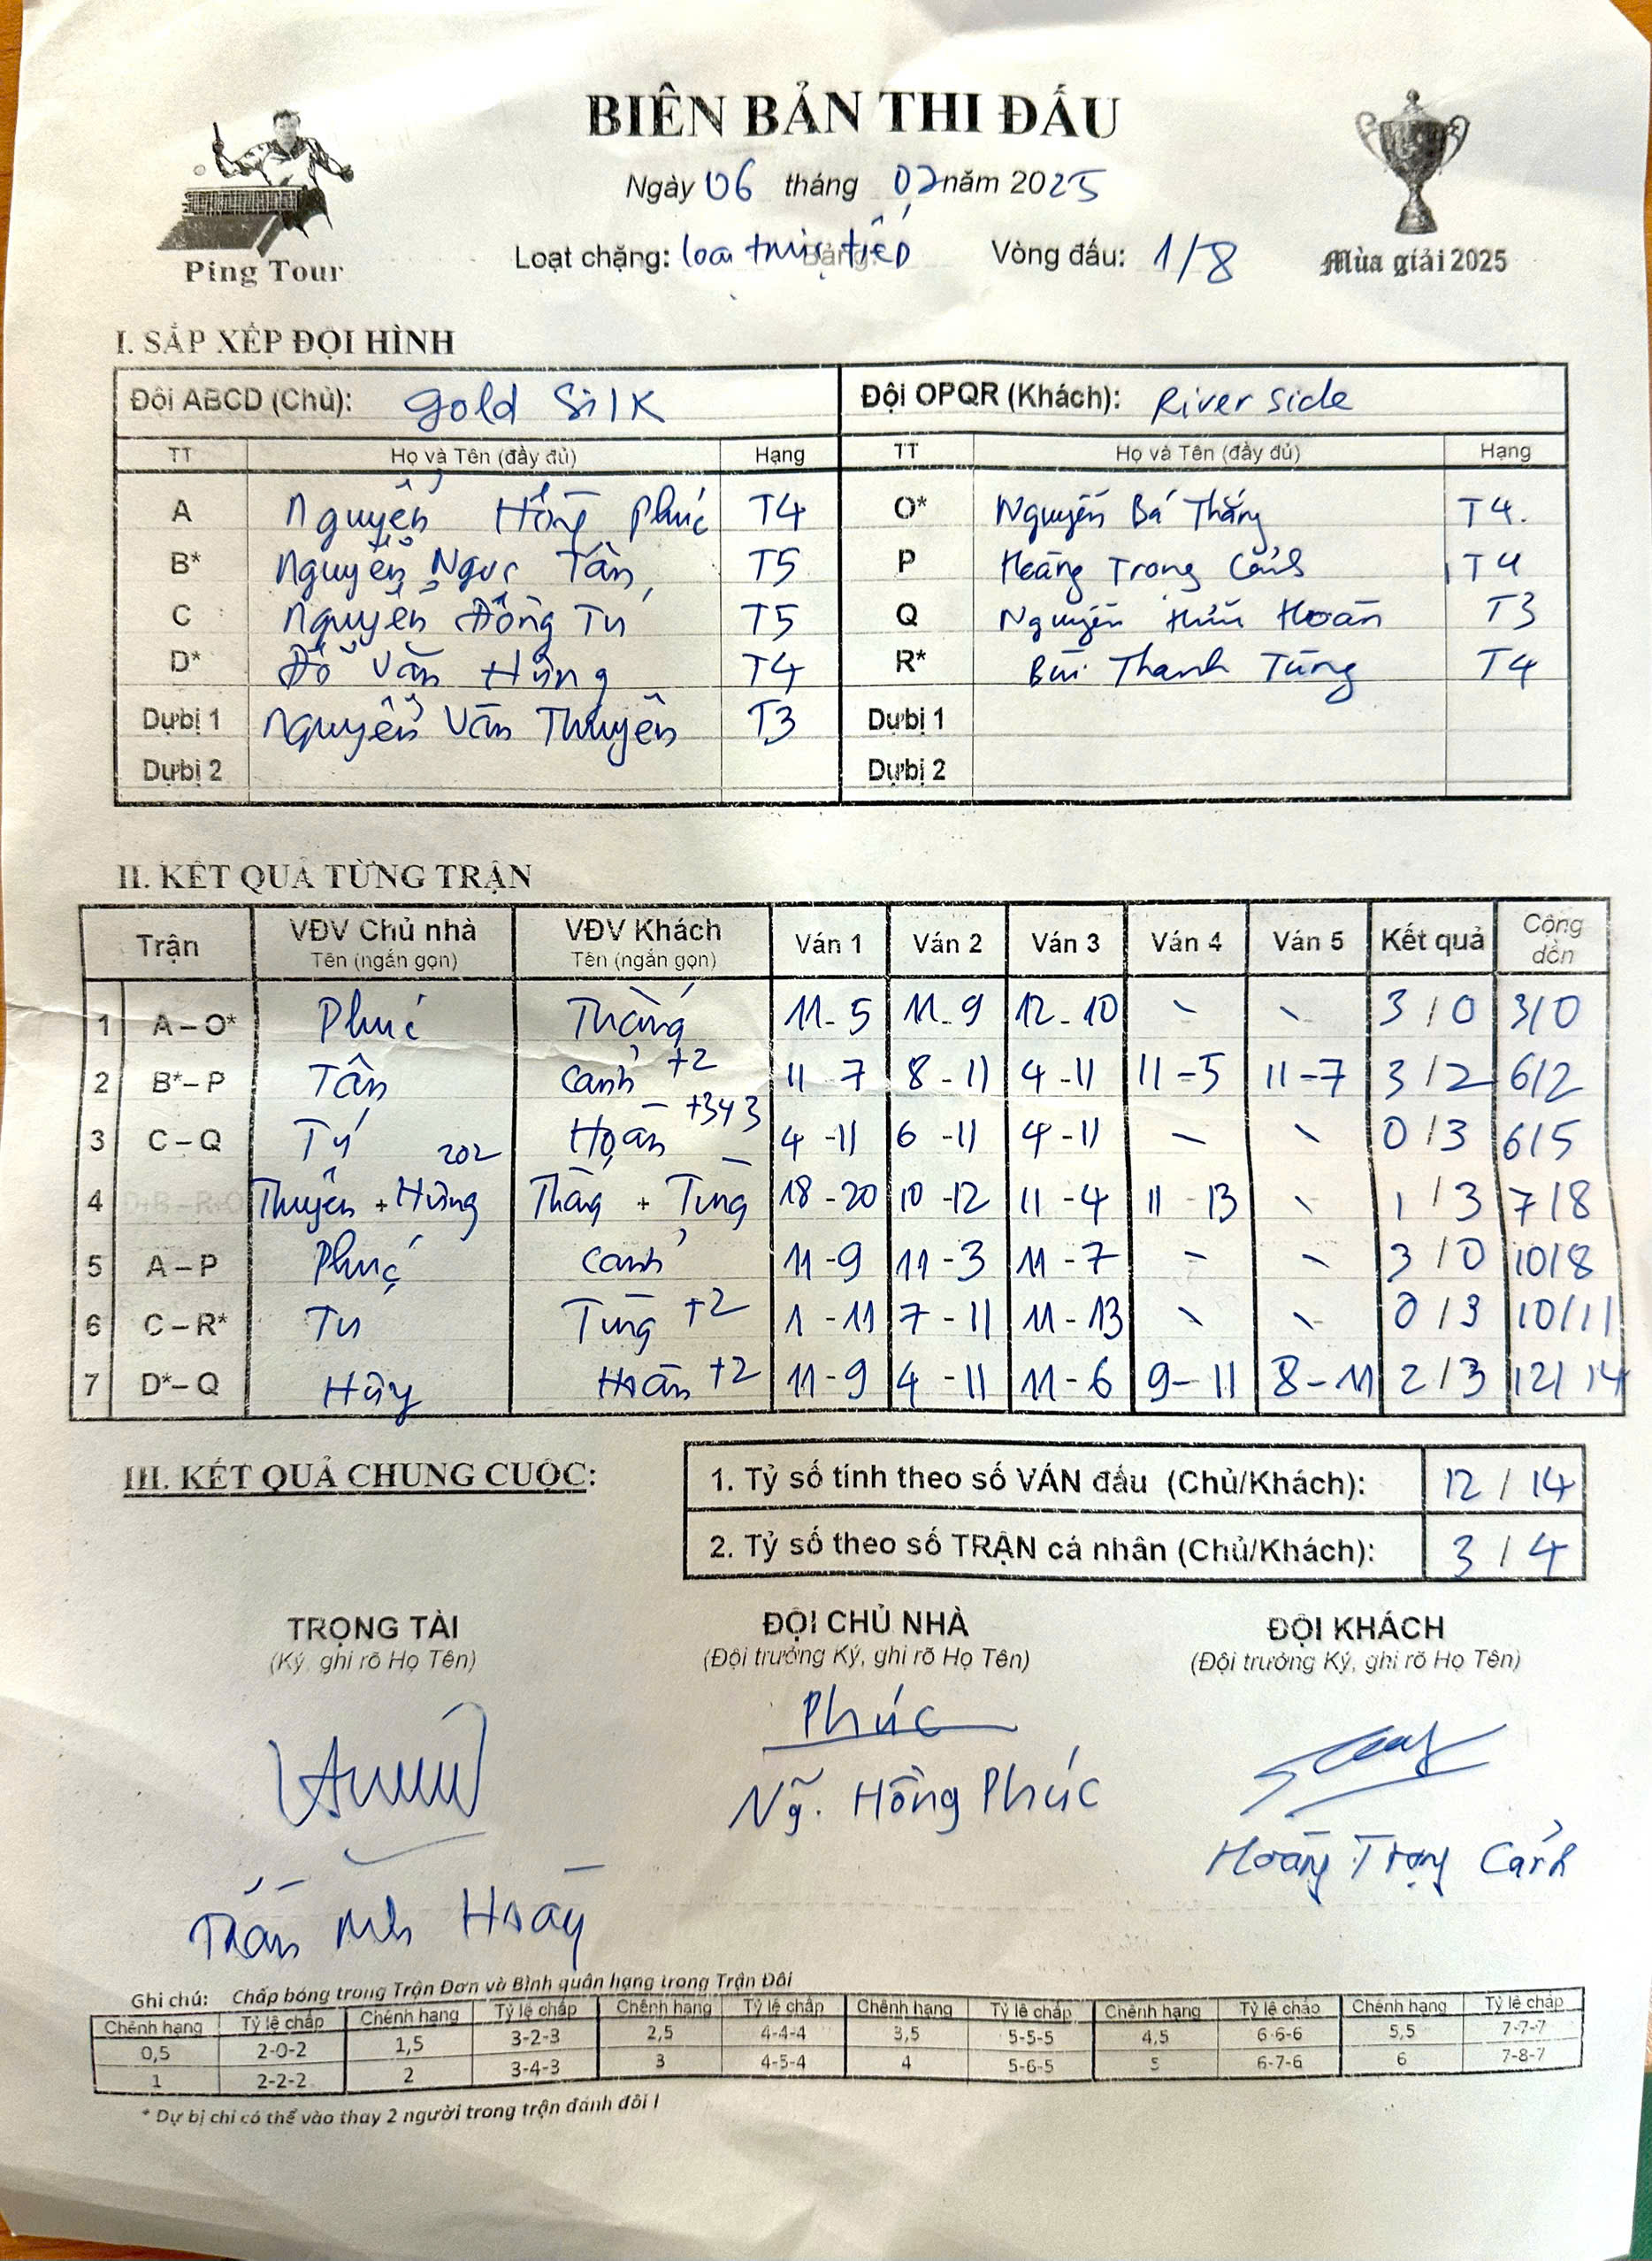 BIÊN BẢN THI ĐẤU
Ngày 06 tháng 07 năm 2025
Ping Tour
Loạt chặng: loại trực tiếp Vòng đấu: 1/8
Mùa giải 2025
I. SẮP XẾP ĐỘI HÌNH
Đội ABCD (Chủ): gold Silk Đội OPQR (Khách): River side
TT Họ và Tên (đầy đủ) Hạng TT Họ và Tên (đầy đủ) Hạng
A Nguyễn Hồng Phúc T4 O* Nguyễn Bá Thắng T4.
B* Nguyễn Ngọc Tân T5 P Hoàng Trọng Cảnh T4
C Nguyễn Đông Tú T5 Q Nguyễn Hữu Hoàn T3
D* Đỗ Văn Hưng T4 R* Bùi Thanh Tùng T4
Dự bị 1 Nguyễn Văn Thuyên T3 Dự bị 1
Dự bị 2 Dự bị 2
II. KẾT QUẢ TỪNG TRẬN
Trận VĐV Chủ nhà Tên (ngắn gọn) VĐV Khách Tên (ngắn gọn) Ván 1 Ván 2 Ván 3 Ván 4 Ván 5 Kết quả Cộng dồn
1 A – O* Phúc Thắng 11-5 11-9 12-10 - - 3/0 3/0
2 B* – P Tân Cảnh +2 11-7 8-11 4-11 11-5 11-7 3/2 6/2
3 C – Q Tú Hoàn +343 4-11 6-11 4-11 - - 0/3 6/5
4 D+B – R+O Thuyên + Hưng 202 Thắng + Tùng 18-20 10-12 11-4 11-13 - 1/3 7/8
5 A – P Phúc Cảnh 11-9 11-3 11-7 - - 3/0 10/8
6 C – R* Tú Tùng +2 1-11 7-11 11-13 - - 0/3 10/11
7 D* – Q Hoàn +2 11-9 4-11 11-6 9-11 8-11 2/3 12/14
III. KẾT QUẢ CHUNG CUỘC:
1. Tỷ số tính theo số VÁN đấu (Chủ/Khách): 12 / 14
2. Tỷ số theo số TRẬN cá nhân (Chủ/Khách): 3 / 4
TRỌNG TÀI ĐỘI CHỦ NHÀ ĐỘI KHÁCH
(Ký, ghi rõ Họ Tên) (Đội trưởng Ký, ghi rõ Họ Tên) (Đội trưởng Ký, ghi rõ Họ Tên)
Phúc
Ng. Hồng Phúc
Hoàng Trọng Cảnh
Ghi chú: Chấp bóng trong Trận Đơn và Bình quân hạng trong Trận Đôi
Chênh hạng Tỷ lệ chấp Chênh hạng Tỷ lệ chấp Chênh hạng Tỷ lệ chấp Chênh hạng Tỷ lệ chấp Chênh hạng Tỷ lệ chấp Chênh hạng Tỷ lệ chấp
0,5 2-0-2 1,5 3-2-3 2,5 4-4-4 3,5 5-5-5 4,5 6-6-6 5,5 7-7-7
1 2-2-2 2 3-4-3 3 4-5-4 4 5-6-5 5 6-7-6 6 7-8-7
* Dự bị chỉ có thể vào thay 2 người trong trận đánh đôi !